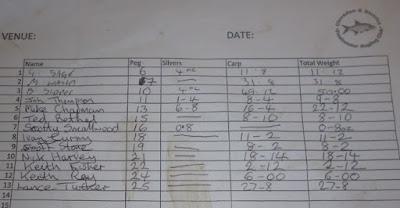 VENUE: DATE:
Name Peg Silvers Carp Total Weight
1 G. SAGE 6 4 oz 11-8 11-12
2 7 — 31-8 31-8
3 10 4 oz 49-12 50-00
4 John Thompson 11 1-4 8-4 9-8
5 Mike Chapman 13 6-8 16-4 22-12
6 Ted Bethel 15 — 8-10 8-10
7 Scotty Smallwood 16 0-8 — 0-8oz
8 Ivan 18 — 11-2 11-2
9 Stone 19 — 8-2 8-2
10 Nick Harvey 21 — 18-14 18-14
11 Keith Fisher 22 — 2-12 2-12
12 Keith Ray 24 — 6-00 6-00
13 Lance Tucker 25 — 27-8 27-8
14
15